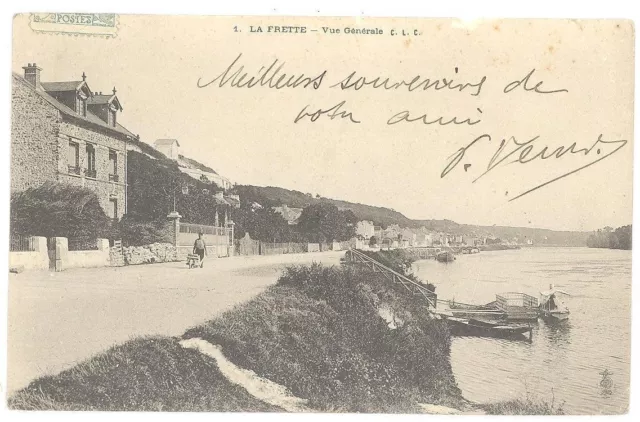 POSTES
1. LA FRETTE — Vue Générale C. L. C.
Meilleurs souvenirs de
votre ami